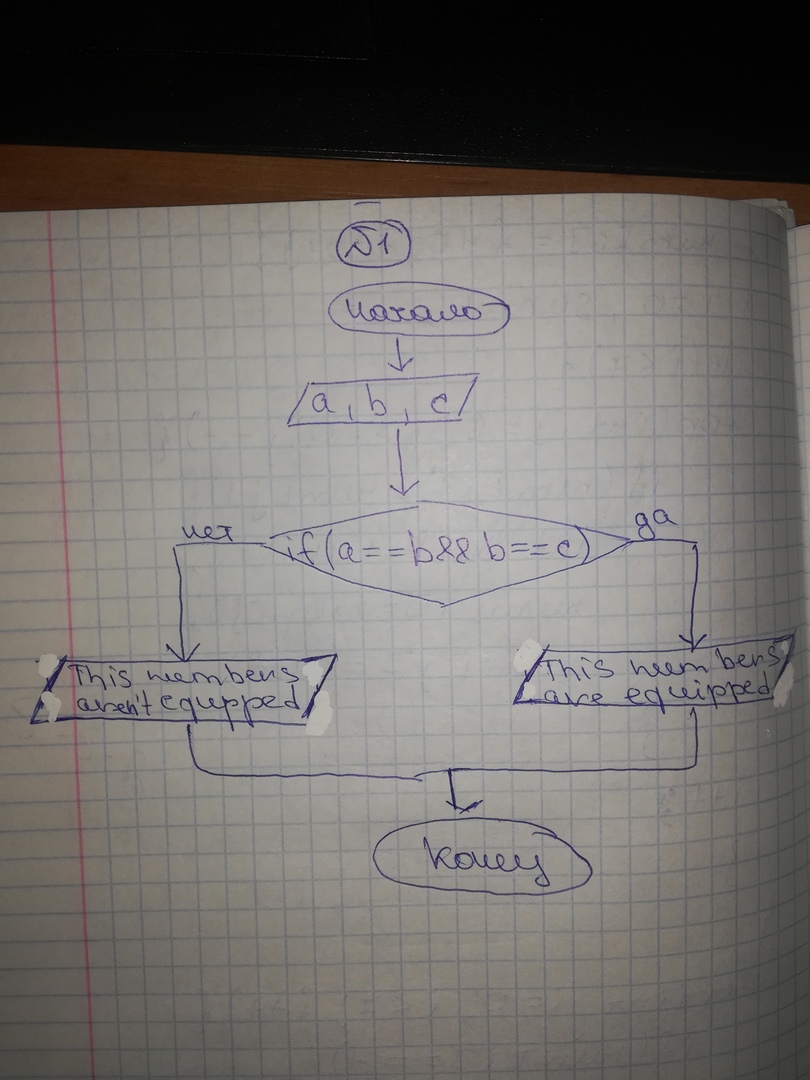 №1
начало
a, b, c
if(a==b&& b==c)
нет
да
This numbers
aren't equpped
This numbers
are equipped
конец